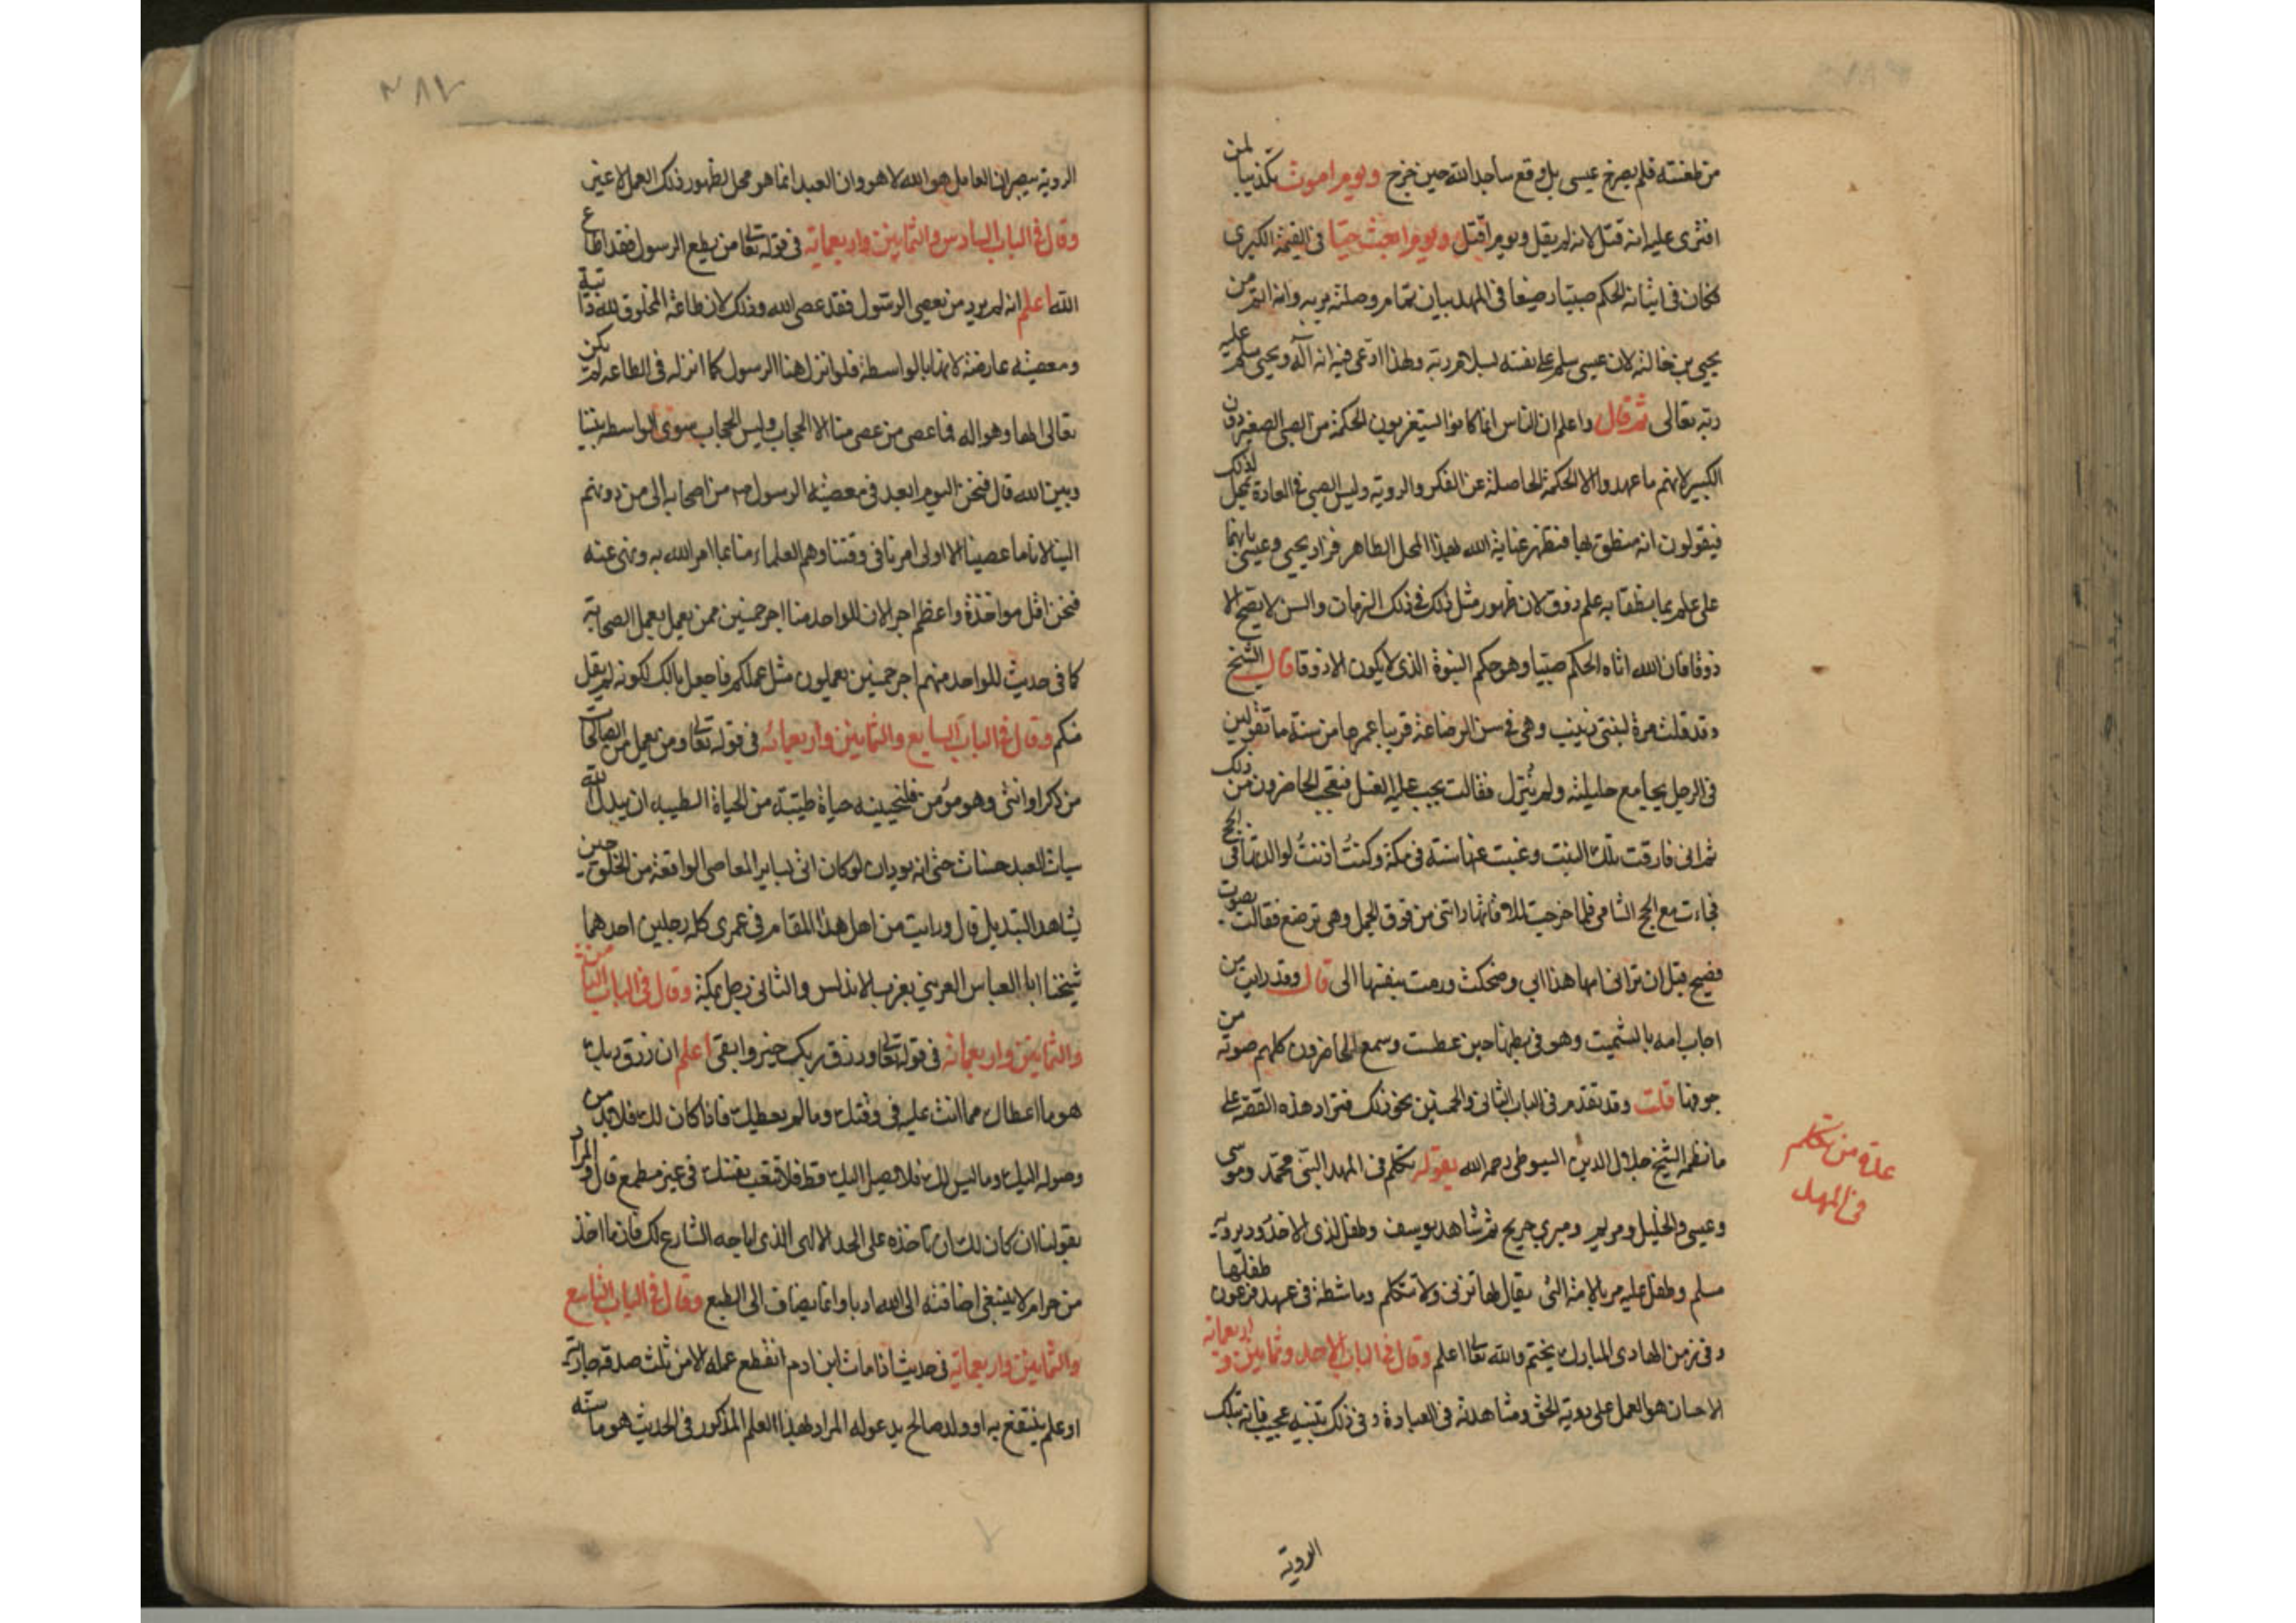 من طعنته فلم يصرخ عيسى بل وقع ساجدا لله حين خرج ويوم اموت تكذيبا لمن
افترى عليه انه قتل لانه لم يقل ويوم اقتل ويوم ابعث حيا في القيمة الكبرى
فكان في اتيانه الحكم صبيا رضيعا في المهد بيان تمام وصلته بربه وانه اتم من
يحيى بن خالته لان عيسى سلم على نفسه بسلام ربه ولهذا ادعى فيه انه اله ويحيى سلم عليه
ربه تعالى ثم قال واعلم ان الناس انما كانوا يستغربون الحكمة من الصبي الصغير دون
الكبير لانهم ما عهدوا الا الحكمة الحاصلة عن الفكر والروية وليس الصبي في العادة بمحل لذلك
فيقولون انه منطق بها فتظهر عناية الله بهذا المحل الطاهر فزاد يحيى وعيسى بانهما
على علم بما نطقا به علم ذوق لان ظهور مثل ذلك في ذلك الزمان والسن لا يصح الا
ذوقا فان الله اتاه الحكم صبيا وهو حكم النبوة الذي لا يكون الا ذوقا قال الشيخ
وقد قلت مرة لبنتي زينب وهي في سن الرضاعة قريبا عمرها من سنة ما تقولين
في الرجل يجامع حليلته ولم ينزل فقالت يجب عليه الغسل فتعجب الحاضرون من ذلك
ثم اني فارقت تلك البنت وغبت عنها سنة في مكة وكنت اذنت لوالدتها في الحج
فجاءت مع الحج الشامي فلما خرجت لملاقاتها راتني من فوق الجمل وهي ترضع فقالت بصوت
فصيح قبل ان تراني امها هذا ابي وضحكت ورمت بنفسها الى قال وقد رايت من
اجاب امه بالتشميت وهو في بطنها حين عطست وسمع الحاضرون كلهم صوته من
جوفها قلت وقد تقدم في الباب الثاني والخمسين نحو ذلك فتزاد هذه القصة على
ما نظمه الشيخ جلال الدين السيوطي رحمه الله بقوله تكلم في المهد النبي محمد وموسى
وعيسى والخليل ومريم ومبري جريج ثم شاهد يوسف وطفل لذي الاخدود يرويه
مسلم وطفل عليه مر بالامة التي يقال لها تزني ولا تتكلم وماشطة في عهد فرعون طفلها
وفي زمن الهادي المبارك يختم والله تعالى اعلم وقال في الباب الاحد وثمانين و اربعمائة
الاحسان هو العمل على روية الحق ومشاهدته في العبادة وفي ذلك تنبيه عجيب فانه بتلك
الروية
عدة من تكلم
في المهد
٣٨٧
الروية يبصر ان العامل هو الله لا هو وان العبد انما هو محل لظهور ذلك العمل لا غير
وقال في الباب السادس والثمانين واربعمائة في قوله تعالى من يطع الرسول فقد اطاع
الله اعلم انه لم يرد من يعصي الرسول فقد عصى الله وذلك لان طاعة المخلوق لله ذاتية
ومعصيته عارضة لانها بالواسطة فلو انزل هنا الرسول كما انزله في الطاعه لم يكن
تعالى الها وهو اله فما عصى من عصى منا الا الحجاب وليس الحجاب سوى الواسطة بيننا
وبين الله قال فنحن اليوم ابعد في معصية الرسول من اصحابه الى من دونهم
الينا لانا ما عصينا الا اولى امرنا في وقتنا وهم العلماء منا بما امر الله به ونهى عنه
فنحن اقل مواخذة واعظم اجرا لان للواحد منا اجر خمسين ممن يعمل بعمل الصحابة
كما في حديث للواحد منهم اجر خمسين يعملون مثل عملكم فاجعل بالك لكونه لم يقل
منكم وقال في الباب السابع والثمانين واربعمائة في قوله تعالى ومن يعمل من الصالحات
من ذكر او انثى وهو مؤمن فلنحيينه حياة طيبة من الحياة الطيبة ان يبدل الله
سيات العبد حسنات حتى انه يود ان لو كان اتى بساير المعاصي الواقعة من الخلق حين
يشاهد التبديل قال ورايت من اهل هذا المقام في عمري كله رجلين احدهما
شيخنا ابا العباس العريني بغرب الاندلس والثاني رجل بمكة وقال في الباب الثامن
والثمانين واربعمائة في قوله تعالى ورزق ربك خير وابقى اعلم ان رزق ربك
هو ما اعطاك مما انت عليه في وقتك وما لم يعطيك فاذا كان لك فلا بد من
وصوله اليك وما ليس لك فلا يصل اليك قط فلا تتعب نفسك في غير مطمع قال والمراد
بقولنا ان كان لك ان تاخذه على الحد الالهي الذي اباحه الشارع لك فان ما اخذ
من حرام لا ينبغي اضافته الى الله ادبا وانما يضاف الى الطبع وقال في الباب التاسع
والثمانين واربعمائة في حديث اذا مات ابن ادم انقطع عمله الا من ثلث صدقة جارية
او علم ينتفع به او ولد صالح يدعو له المراد بهذا العلم المذكور في الحديث هو ما سنه